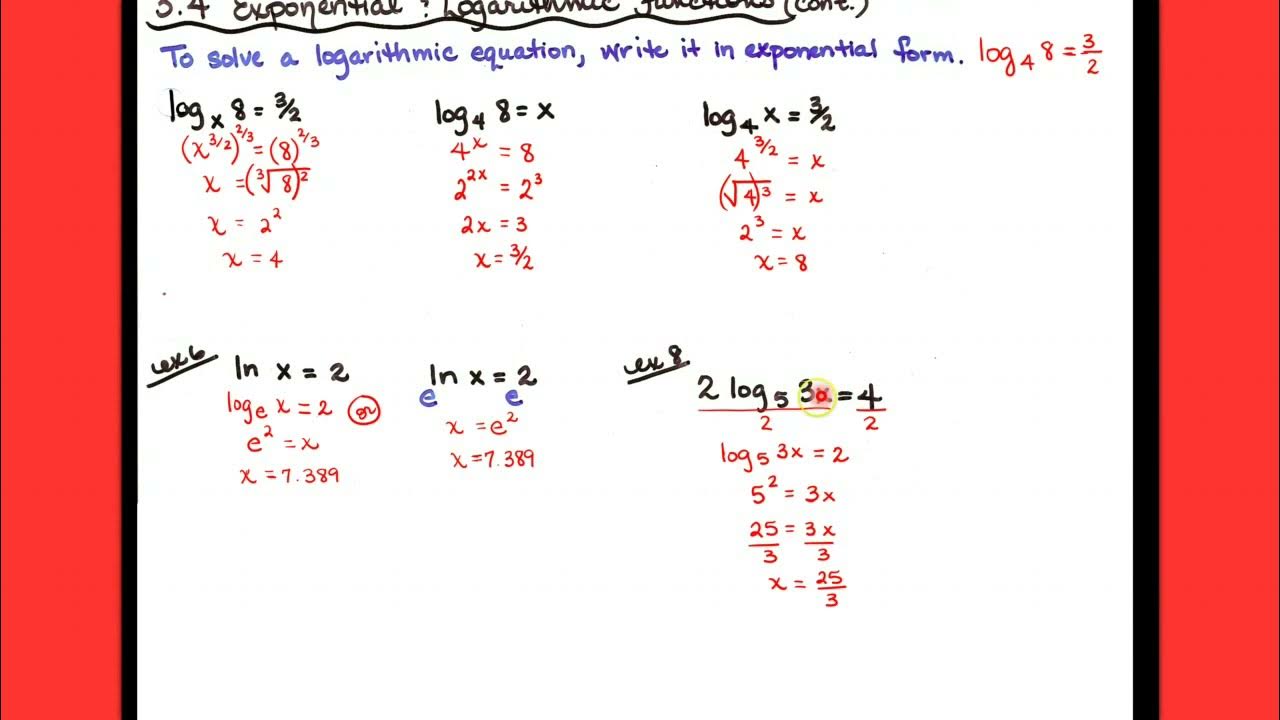 5.4 Exponential & Logarithmic Functions (cont.)
To solve a logarithmic equation, write it in exponential form. log₄ 8 = 3/2
logₓ 8 = 3/2
(x^3/2)^2/3 = (8)^2/3
x = (∛8)²
x = 2²
x = 4
log₄ 8 = x
4^x = 8
2^2x = 2³
2x = 3
x = 3/2
log₄ x = 3/2
4^3/2 = x
(√4)³ = x
2³ = x
x = 8
ex 6
ln x = 2
logₑ x = 2 or
e² = x
x = 7.389
ln x = 2
e e
x = e²
x = 7.389
ex 8
2 log₅ 3x = 4
2 2
log₅ 3x = 2
5² = 3x
25/3 = 3x/3
x = 25/3